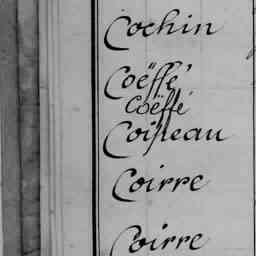 Cochin
Coëffé
Coëffé
Coipeau
Coirre
Coirre